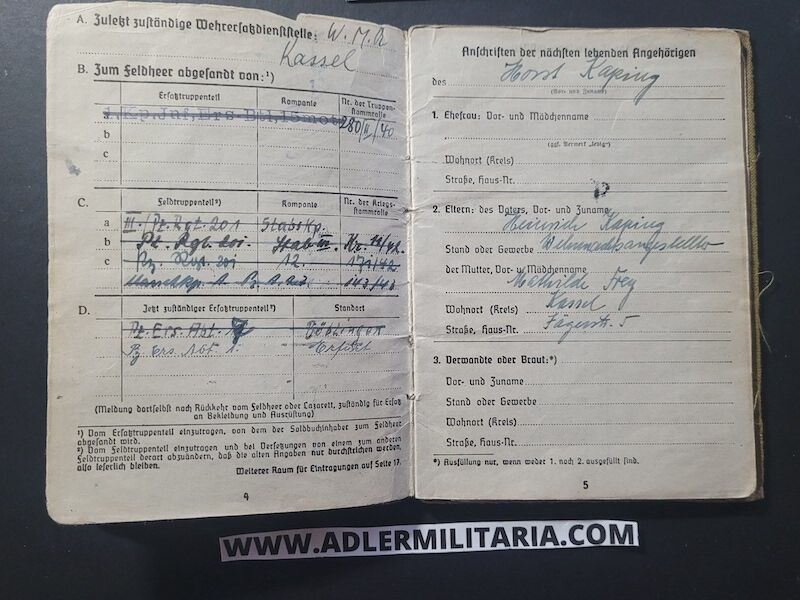 A. Zuletzt zuständige Wehrersatzdienststelle: W. M. A
Kassel
B. Zum Feldheer abgesandt von:¹)
Ersatztruppenteil Kompanie Nr. der Truppen-
stammrolle
a 1.Kp.Inf.Ers-Btl.15mot. 280/II/40
b
c
C. Feldtruppenteil²) Kompanie Nr. der Kriegs-
stammrolle
a III./Pz.Rgt. 201 StabsKp.
b Pz. Rgt. 201 Stab III
c Pz. Rgt. 201 12. 171/42
143/43
D. Jetzt zuständiger Ersatztruppenteil²) Standort
Pz. Ers. Abt. 7 Böblingen
Pz Ers Abt. 1. Erfurt
(Meldung dortselbst nach Rückkehr vom Feldheer oder Lazarett, zuständig für Ersatz
an Bekleidung und Ausrüstung)
¹) Vom Ersatztruppenteil einzutragen, von dem der Soldbuchinhaber zum Feldheer
abgesandt wird.
²) Vom Feldtruppenteil einzutragen und bei Versetzungen von einem zum anderen
Feldtruppenteil derart abzuändern, daß die alten Angaben nur durchstrichen werden,
also leserlich bleiben.
Weiterer Raum für Eintragungen auf Seite 17.
4
Anschriften der nächsten lebenden Angehörigen
des Horst Kaping
(Vor- und Zuname)
1. Ehefrau: Vor- und Mädchenname
(ggf. Vermerk „ledig")
Wohnort (Kreis)
Straße, Haus-Nr.
2. Eltern: des Vaters, Vor- und Zuname
Heinrich Kaping
Stand oder Gewerbe Wehrmachtsangestellter
der Mutter, Vor- u. Mädchenname
Mathilde Frey
Wohnort (Kreis) Kassel
Straße, Haus-Nr. Jägerstr. 5
3. Verwandte oder Braut:*)
Vor- und Zuname
Stand oder Gewerbe
Wohnort (Kreis)
Straße, Haus-Nr.
*) Ausfüllung nur, wenn weder 1. noch 2. ausgefüllt sind.
5
WWW.ADLERMILITARIA.COM